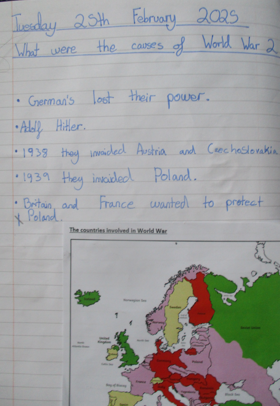 Tuesday 25th February 2025
What were the causes of World War 2
• German's lost their power.
• Adolf Hitler.
• 1938 they invaided Austria and Czecheslovakia
• 1939 they invaded Poland.
• Britain and France wanted to protect
Poland.
The countries involved in World War